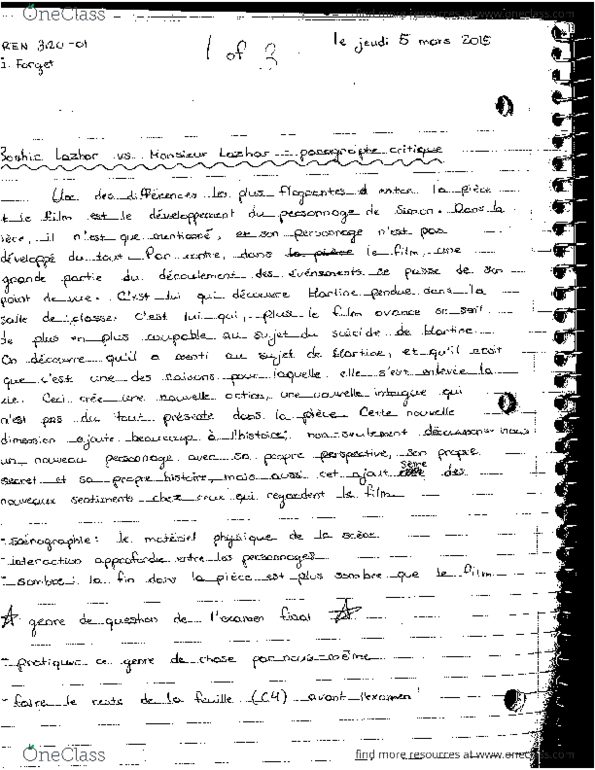 OneClass
find more resources at www.oneclass.com
REN 3120-01
1 of 3
le jeudi 5 mars 2015
J. Forget
Bashir Lazhar vs. Monsieur Lazhar - paragraphe critique
Une des différences les plus flagrantes entre la pièce
et le film est le développement du personnage de Simon. Dans la
ièce, il n'est que mentionné, et son personnage n'est pas
développé du tout. Par contre, dans la pièce le film, une
grande partie du déroulement des événements se passe de son
point de vue. C'est lui qui découvre Martine pendue dans la
salle de classe. C'est lui qui, plus le film avance se sent
de plus en plus coupable au sujet du suicide de Martine.
On découvre qu'il a menti au sujet de Martine, et qu'il croit
que c'est une des raisons pour laquelle elle s'est enlevée la
vie. Ceci crée une nouvelle action, une nouvelle intrigue qui
n'est pas du tout présente dans la pièce. Cette nouvelle
dimension ajoute beaucoup à l'histoire; non-seulement découvrons-nous
un nouveau personnage avec sa propre perspective, son propre
secret et sa propre histoire, mais aussi cet ajout sème des
nouveaux sentiments chez ceux qui regardent le film.
- scénographie: le matériel physique de la scène
- interaction approfondie entre les personnages
- sombre: la fin dans la pièce est plus sombre que le film
genre de question de l'examen final
- pratiquer ce genre de chose par nous-même
- faire le reste de la feuille (C4) avant l'examen!
OneClass
find more resources at www.oneclass.com